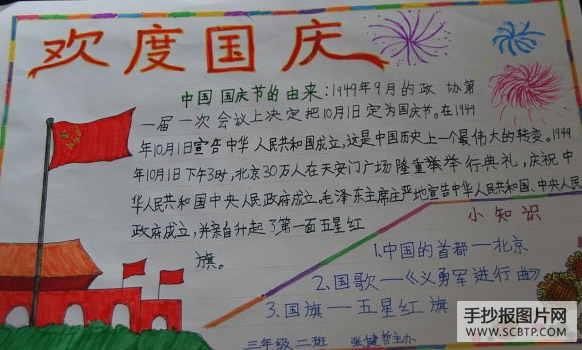 欢度国庆
中国 国庆节的由来:1949年9月的政 协第
一届一次会议上决定把10月1日定为国庆节。在1949
年10月1日宣告中华人民共和国成立,这是中国历史上一个最伟大的转变。1949
年10月1日下午3时,北京30万人在天安门广场隆重举举行典礼,庆祝中
华人民共和国中央人民政府成立。毛泽东主席庄严地宣告中华人民共和国、中央人民
政府成立,并亲自升起了第一面五星红
旗。
小知识
1.中国的首都—北京
2.国歌—《义勇军进行曲》
3.国旗—五星红旗
三年级二班 张健哲主办
手抄报图片网
WWW.SCBTP.COM